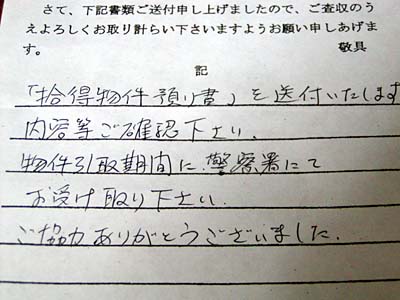 さて、下記書類ご送付申し上げましたので、ご査収のう
えよろしくお取り計らい下さいますようお願い申しあげま
す。
敬具
記
「拾得物件預り書」を送付いたします
内容等ご確認下さい.
物件引取期間に.警察署にて
お受け取り下さい.
ご協力ありがとうございました.